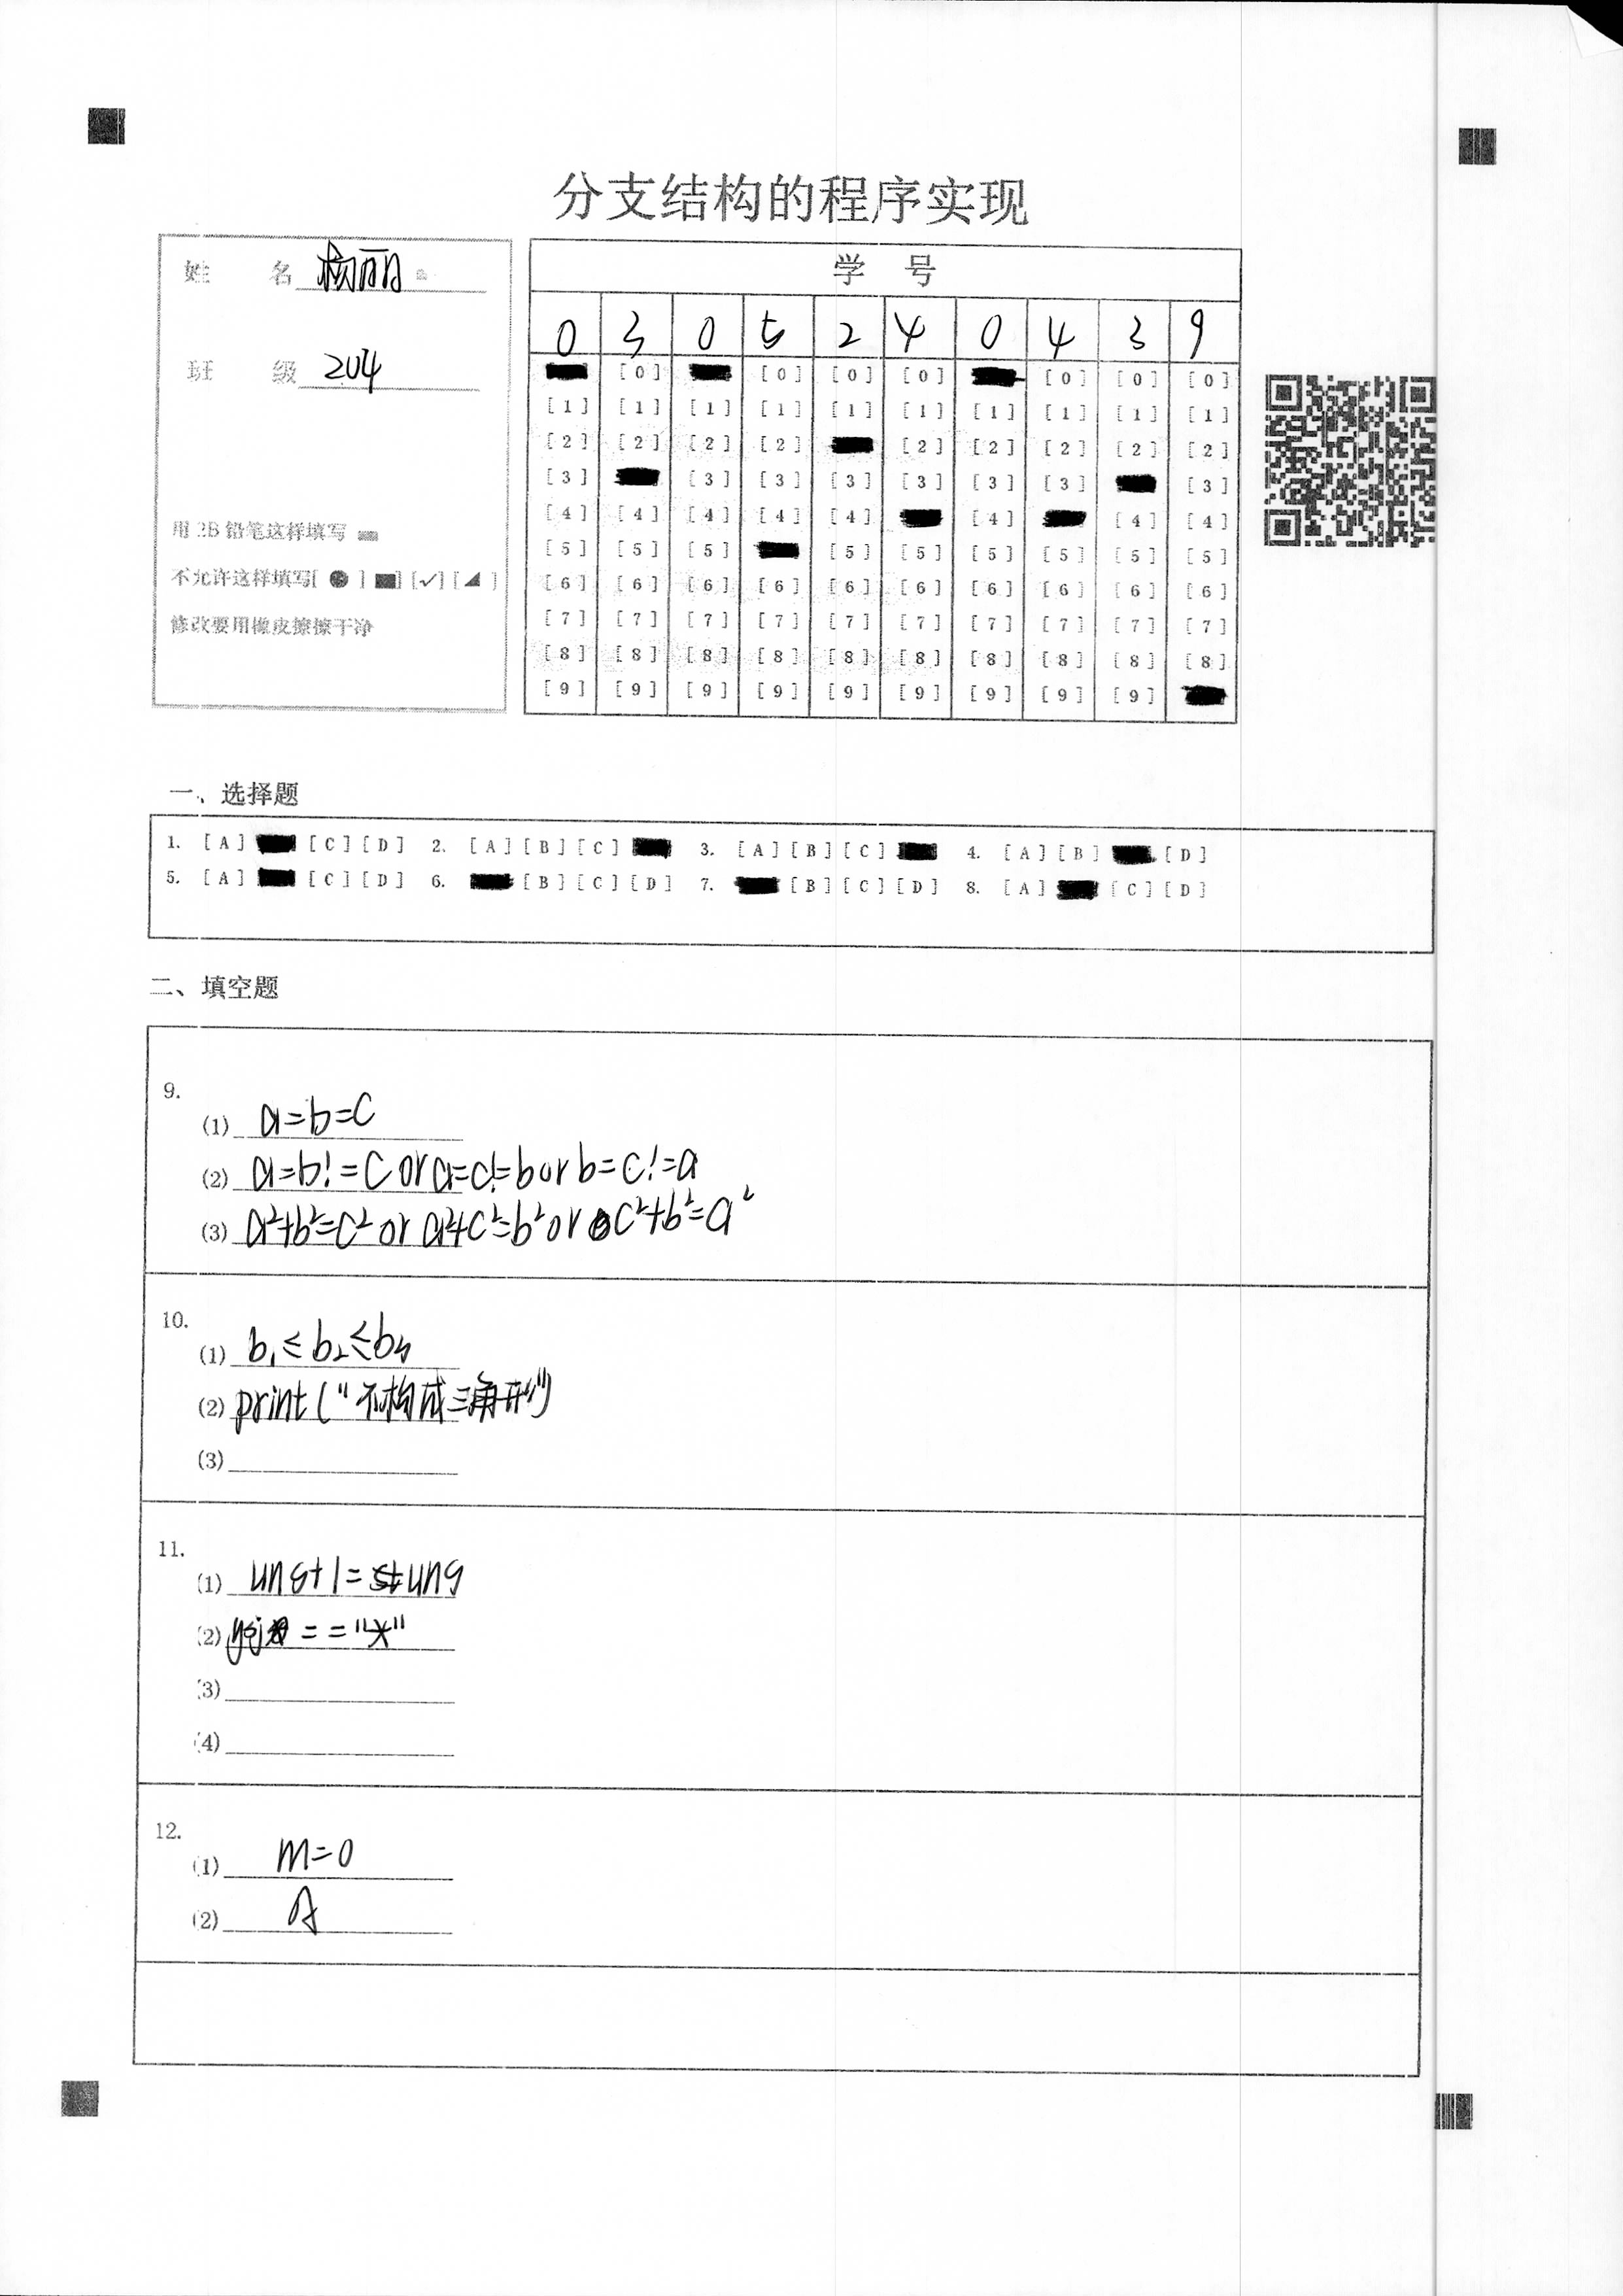 分支结构的程序实现
姓 名 杨丽
班 级 204
用 2B 铅笔这样填写
不允许这样填写[ ● ] ■] [✓] [◢ ]
修改要用橡皮擦擦干净
学 号
0 3 0 5 2 4 0 4 3 9
[0] [0] [0] [0] [0] [0] [0]
[1] [1] [1] [1] [1] [1] [1] [1] [1] [1]
[2] [2] [2] [2] [2] [2] [2] [2] [2]
[3] [3] [3] [3] [3] [3] [3] [3]
[4] [4] [4] [4] [4] [4] [4] [4]
[5] [5] [5] [5] [5] [5] [5] [5] [5]
[6] [6] [6] [6] [6] [6] [6] [6] [6] [6]
[7] [7] [7] [7] [7] [7] [7] [7] [7] [7]
[8] [8] [8] [8] [8] [8] [8] [8] [8] [8]
[9] [9] [9] [9] [9] [9] [9] [9] [9]
一、选择题
1. [A] [C] [D] 2. [A] [B] [C] 3. [A] [B] [C] 4. [A] [B] [D]
5. [A] [C] [D] 6. [B] [C] [D] 7. [B] [C] [D] 8. [A] [C] [D]
二、填空题
9.
(1) a=b=c
(2) a=b!=c or a=c!=b or b=c!=a
(3) a²+b²=c² or a²+c²=b² or c²+b²=a²
10.
(1) b₁≤b₂≤b₃
(2) print("不构成三角形")
(3)
11.
(1) ung+1=s+ung
(2) =="*"
(3)
(4)
12.
(1) m=0
(2) A